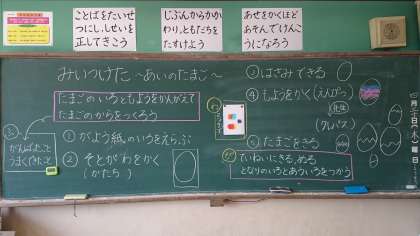 ことばをたいせ
つにし、しせいを
正してきこう
じぶんからかか
わり、ともだちを
たすけよう
あせをかくほど
あそんでけんこ
うになろう
みいつけた ～あいのたまご～
たまごのいろともようをかんがえて
たまごのからをつくろう
① がようし紙のいろをえらぶ
② そとがわをかく
(かたち)
③ はさみできる
④ もようをかく(えんぴつ)
(クレパス)
⑤ たまごをきる
ていねいにきる、ぬる
となりのいろとあういろをつかう
がんばったこと
うまくできたこと